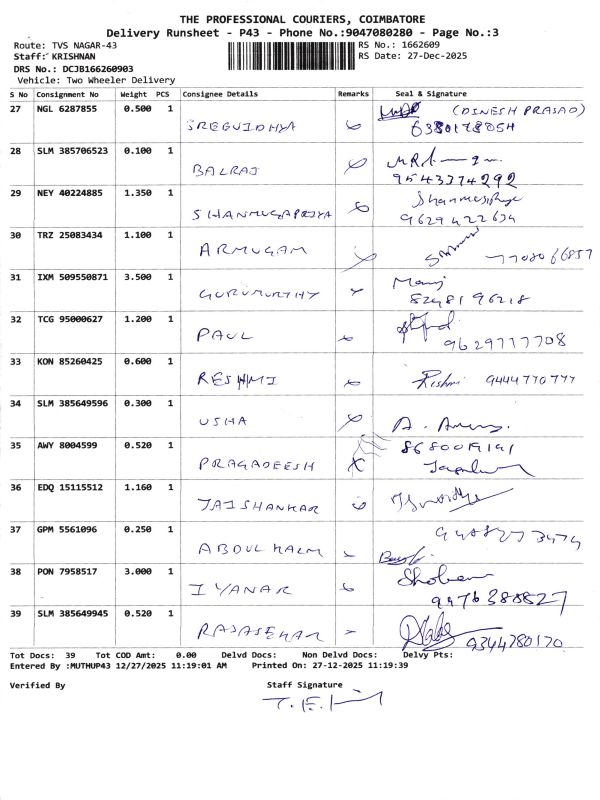 THE PROFESSIONAL COURIERS, COIMBATORE
Delivery Runsheet - P43 - Phone No.:9047080280 - Page No.:3
Route: TVS NAGAR-43 RS No.: 1662609
Staff: KRISHNAN RS Date: 27-Dec-2025
DRS No.: DCJB166260903
Vehicle: Two Wheeler Delivery
S No Consignment No Weight PCS Consignee Details Remarks Seal & Signature
27 NGL 6287855 0.500 1 (DINESH PRASAD)
SREGUIDHYA 6380178054
28 SLM 385706523 0.100 1
BALRAJ 9543374292
29 NEY 40224885 1.350 1
SHANMUGAPRIYA 9629422634
30 TRZ 25083434 1.100 1
ARMUGAM 7708066857
31 IXM 509550871 3.500 1 Manoj
GURUMURTHY 8248196218
32 TCG 95000627 1.200 1
PAUL 9629717708
33 KON 85260425 0.600 1
RESHMI Rishmi 9444770777
34 SLM 385649596 0.300 1
USHA
35 AWY 8004599 0.520 1 8680019191
PRAGADEESH
36 EDQ 15115512 1.160 1
JAISHANKAR
37 GPM 5561096 0.250 1
ABDUL KALM
38 PON 7958517 3.000 1
IYANAR 9976388827
39 SLM 385649945 0.520 1
RAJASEKAR 9344780170
Tot Docs: 39 Tot COD Amt: 0.00 Delvd Docs: Non Delvd Docs: Delvy Pts:
Entered By :MUTHUP43 12/27/2025 11:19:01 AM Printed On: 27-12-2025 11:19:39
Verified By Staff Signature